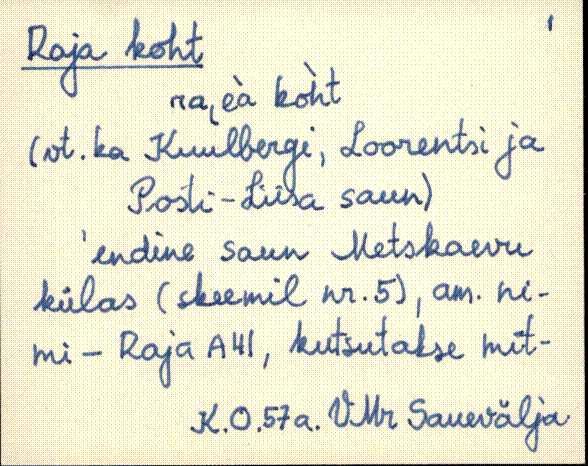 1
Raja koht
ra₍eà kòht
(vt. ka Kuulbergi, Loorentsi ja
Posti-Liisa saun)
'endine saun Metskaevu
külas (skeemil nr. 5), am. ni-
mi - Raja A41, kutsutakse mit-
K.O. 57a. VMr Sauevälja